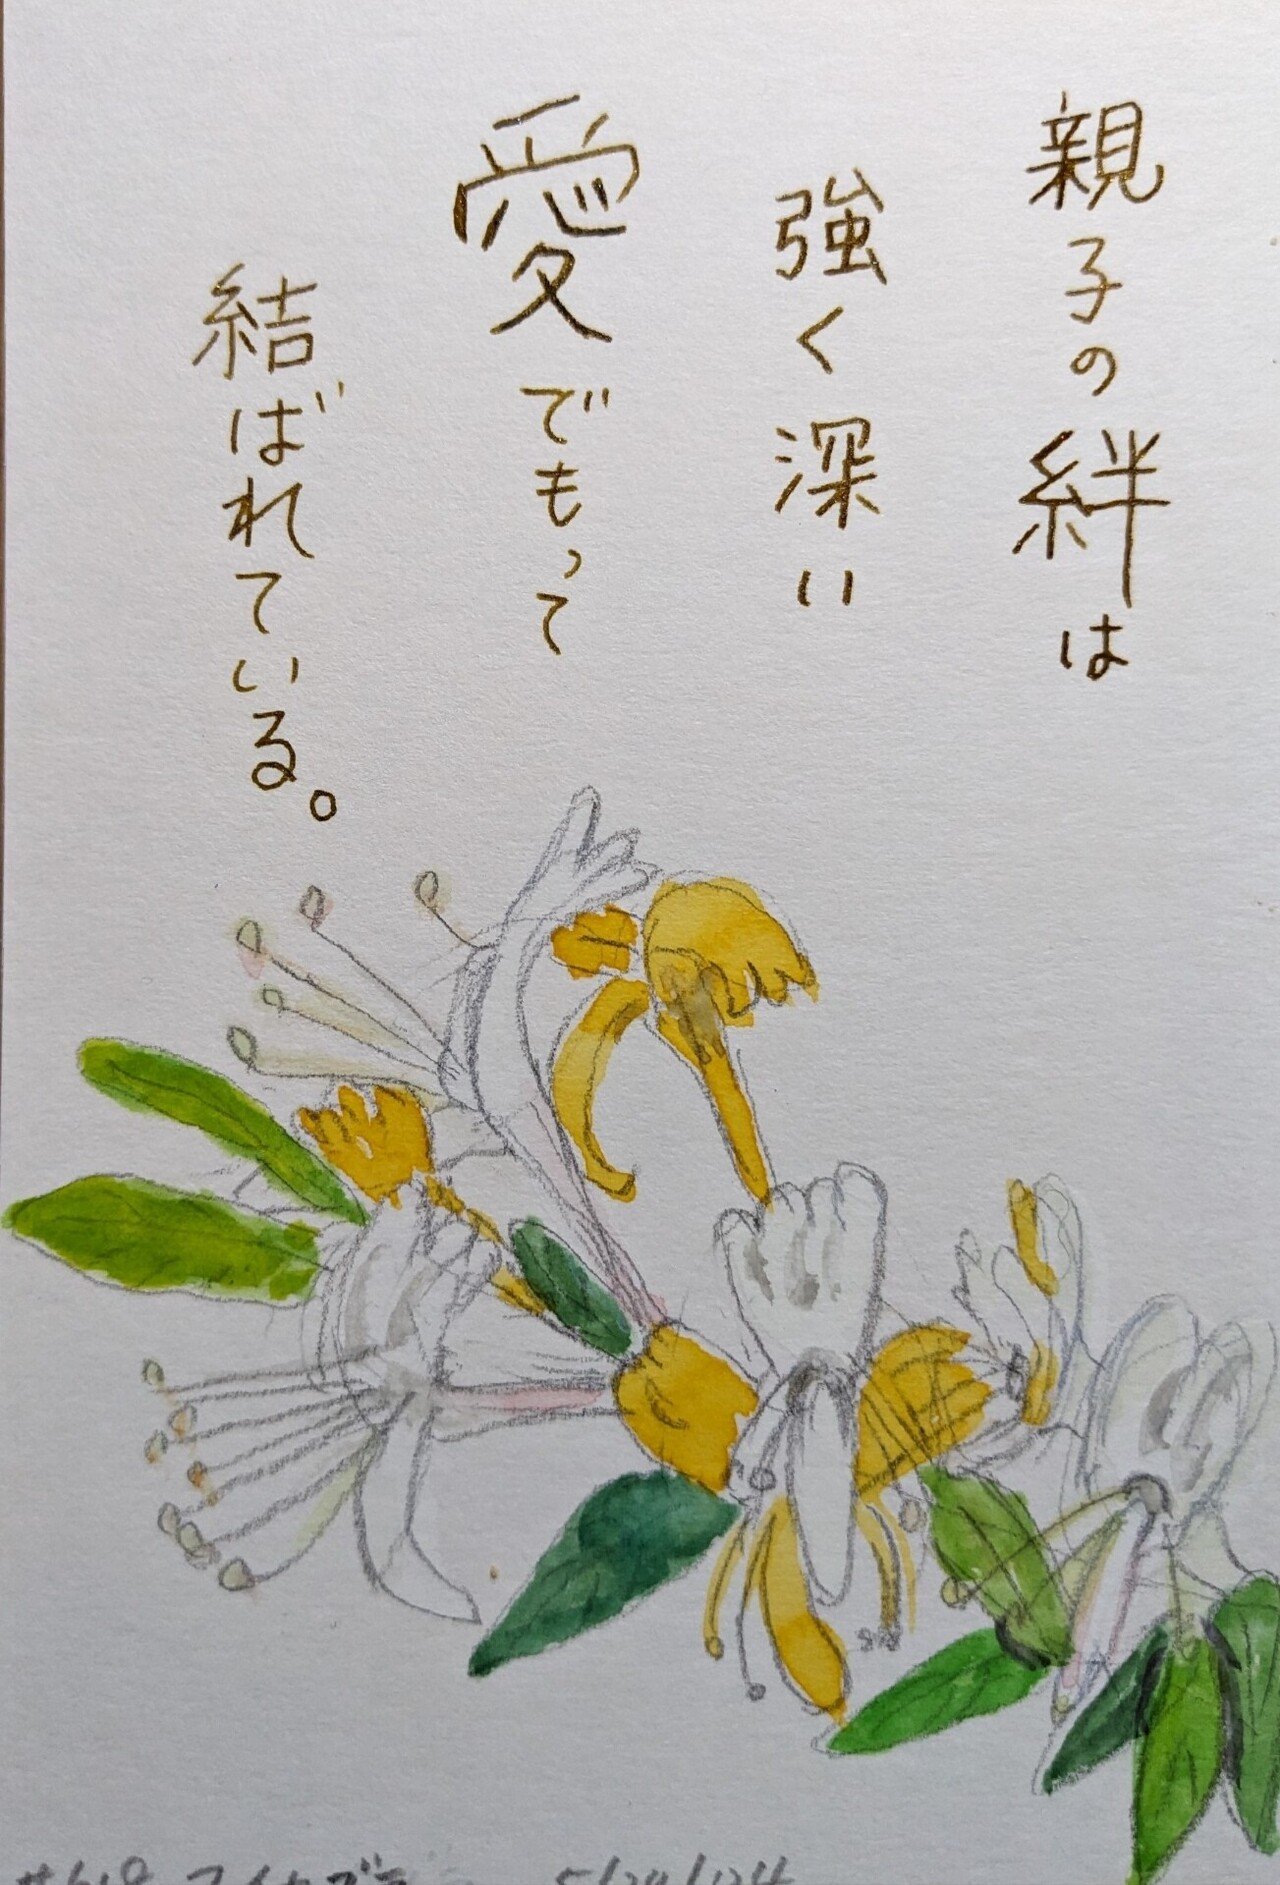 親子の絆は
強く深い
愛でもって
結ばれている。
スイカズラ